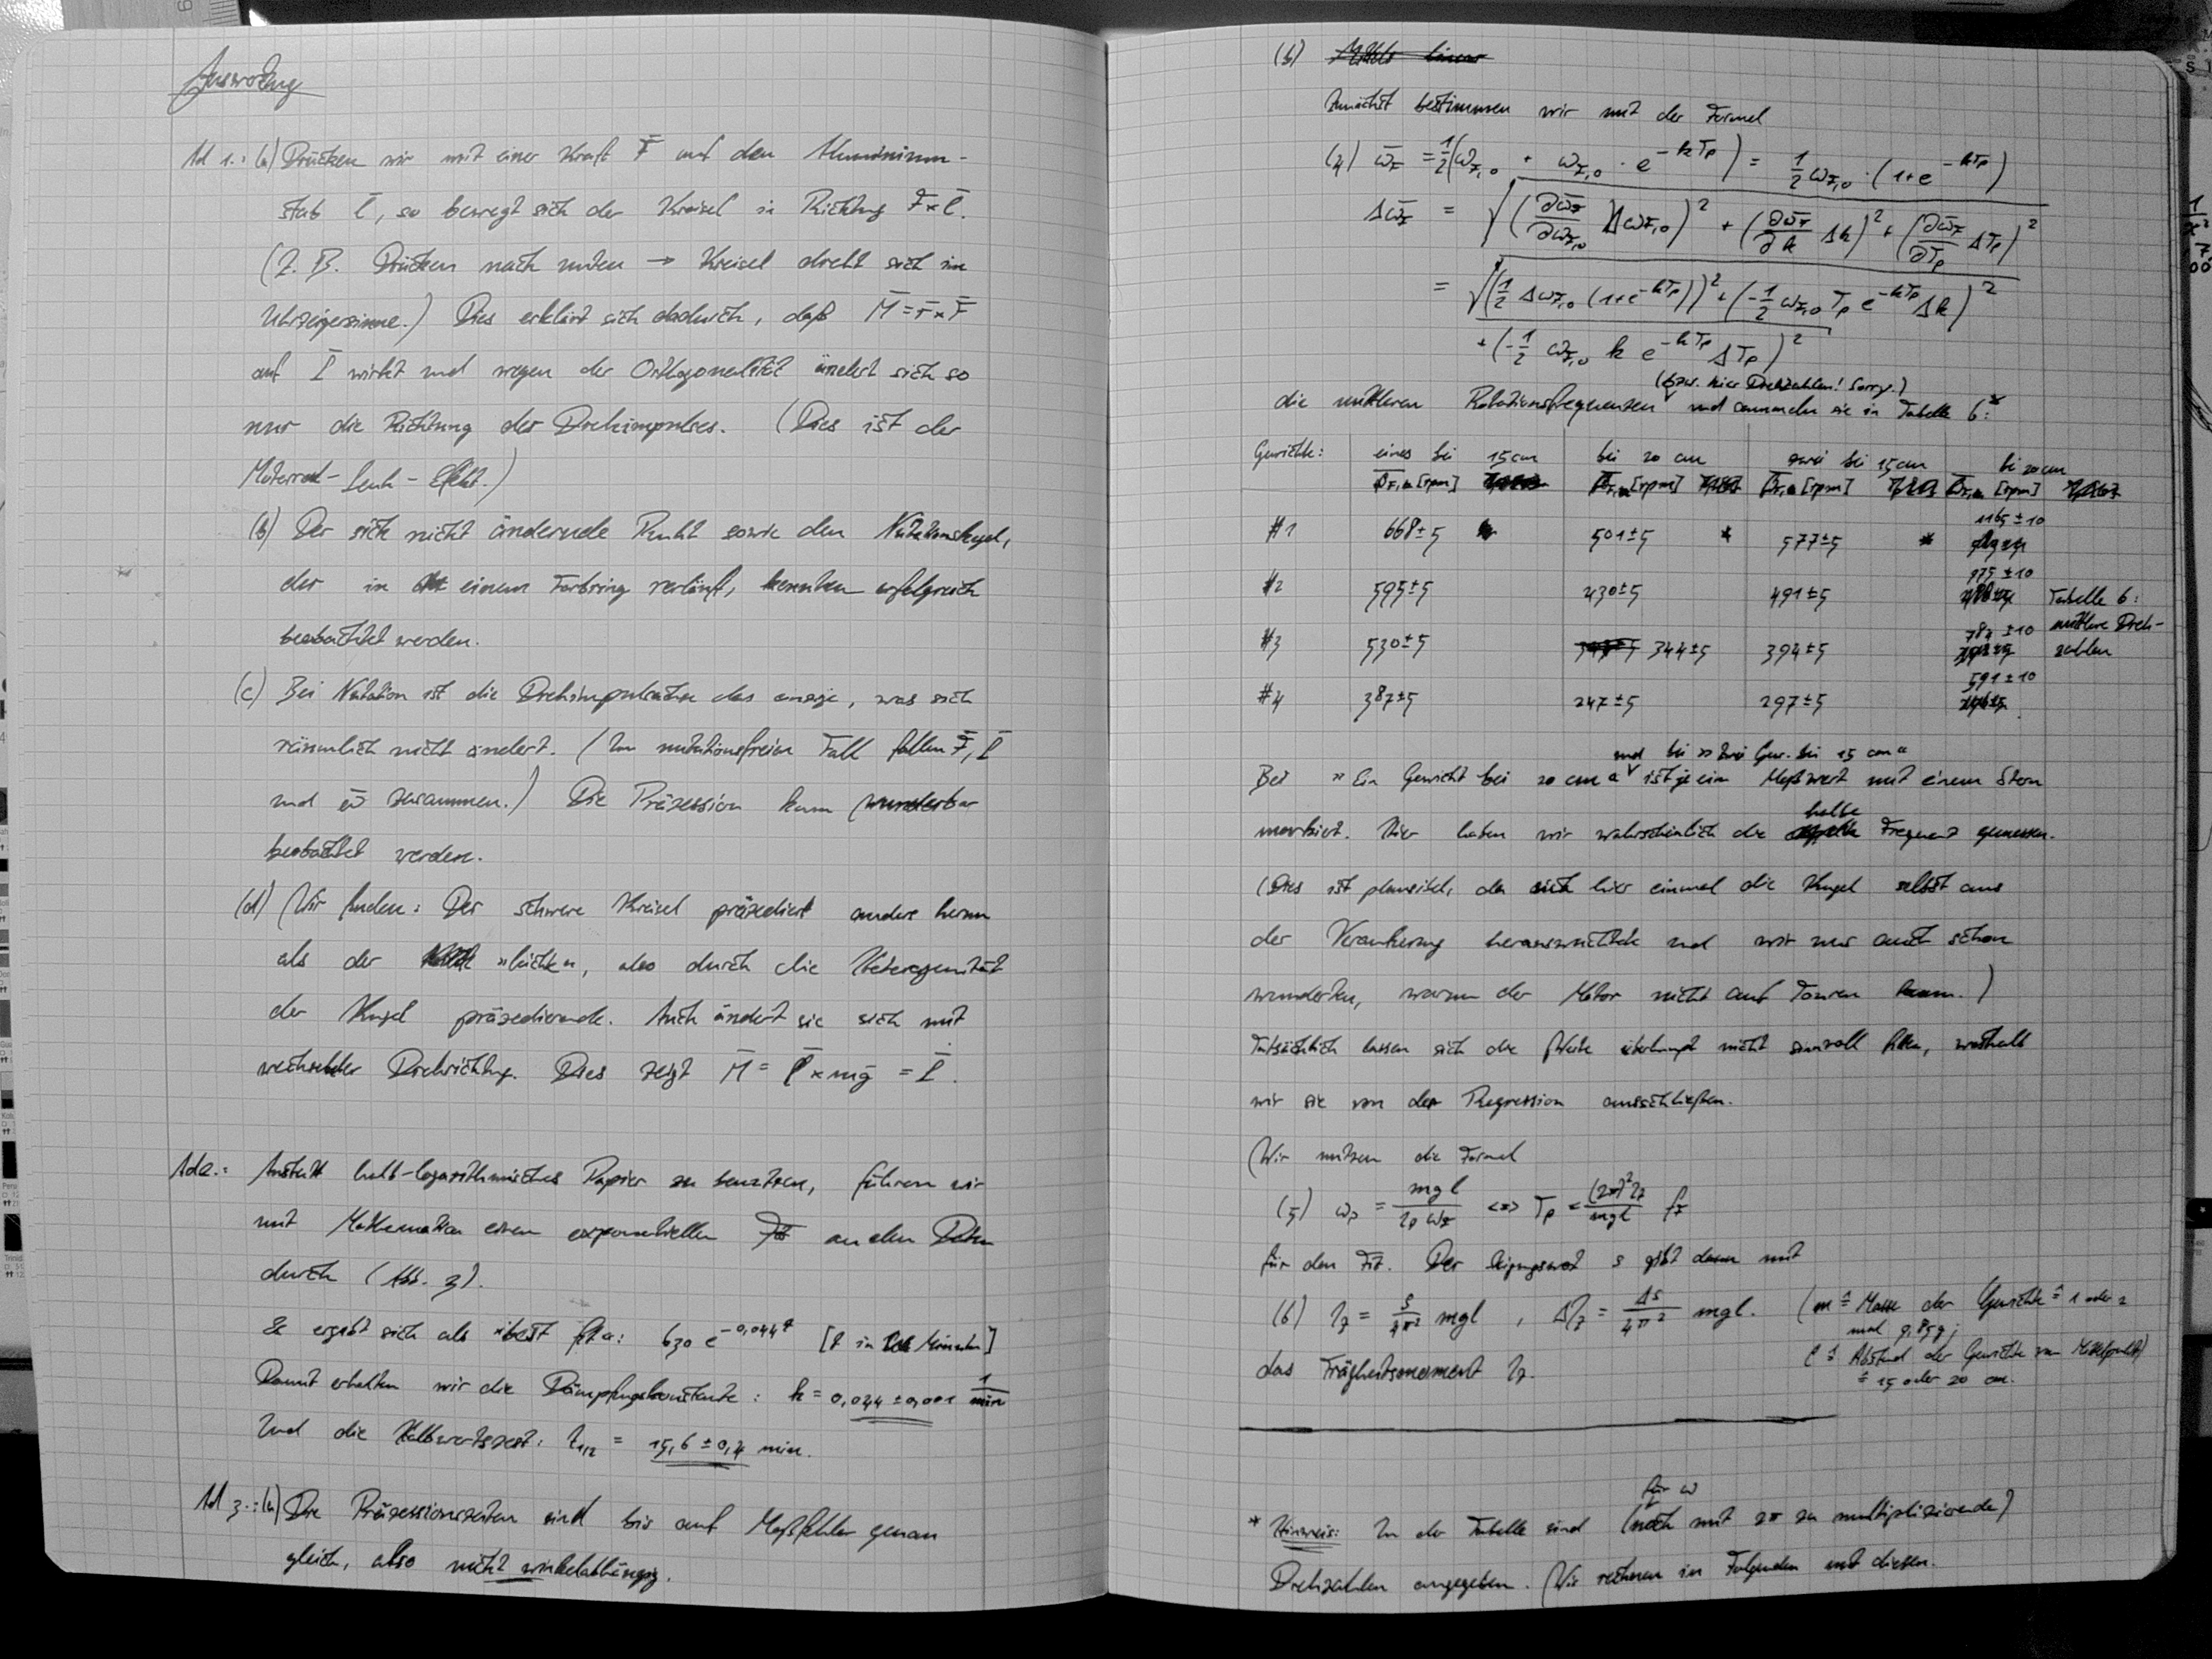 Auswertung
Ad 1.: (a) Drücken wir mit einer Kraft F̄ auf den Aluminium-
stab l̄, so bewegt sich der Kreisel in Richtung F̄ × l̄.
(Z. B. Drücken nach unten → Kreisel dreht sich im
Uhrzeigersinne.) Dies erklärt sich dadurch, daß M̄ = r̄ × F̄
auf L̄ wirkt und wegen der Orthogonalität ändert sich so
nur die Richtung des Drehimpulses. (Dies ist der
Motorrad-Lenk-Effekt.)
(b) Der sich nicht ändernde Punkt sowie den Nutationskegel,
der in einem Farbring verläuft, konnten erfolgreich
beobachtet werden.
(c) Bei Nutation ist die Drehimpulsachse das einzige, was sich
räumlich nicht ändert. (Im nutationsfreien Fall fallen F̄, L̄
und ω̄ zusammen.) Die Präzession kann wunderbar
beobachtet werden.
(d) Wir finden: Der schwere Kreisel präzediert anders herum
als der »leichte«, also durch die Heterogenität
der Kugel präzedierende. Auch ändert sie sich mit
wechselnder Drehrichtung. Dies zeigt M̄ = l̄ × mḡ = L̄.
Ad 2.: Anstatt halb-logarithmisches Papier zu benutzen, führen wir
mit Mathematica einen exponentiellen Fit an den Daten
durch (Abb. 3).
Es ergibt sich als »best fit«: 630 e^(-0,044t) [t in Minuten]
Damit erhalten wir die Dämpfungskonstante: k = 0,044 ± 0,001 1/min
Und die Halbwertszeit: t_1/2 = 15,6 ± 0,4 min.
Ad 3.: (a) Die Präzessionszeiten sind bis auf Meßfehler genau
gleich, also nicht winkelabhängig.
(b)
Zunächst bestimmen wir mit der Formel
(4) ω̄_F = 1/2 (ω_F,0 + ω_F,0 · e^(-kT_P)) = 1/2 ω_F,0 · (1+e^(-kT_P))
Δω̄_F = √((∂ω̄_F/∂ω_F,0 Δω_F,0)² + (∂ω̄_F/∂k Δk)² + (∂ω̄_F/∂T_P ΔT_P)²
= √((1/2 Δω_F,0 (1+e^(-kT_P)))² + (-1/2 ω_F,0 T_P e^(-kT_P) Δk)²
+ (-1/2 ω_F,0 k e^(-kT_P) ΔT_P)²
(bzw. hier Drehzahlen! Sorry.)
die mittleren Rotationsfrequenzen und sammeln sie in Tabelle 6:*
Gewichte: eines bei 15 cm bei 20 cm zwei bei 15 cm bei 20 cm
[rpm] [rpm] [rpm] [rpm]
#1 668±5 501±5 * 577±5 * 1165±10
#2 595±5 430±5 491±5 975±10 Tabelle 6:
#3 530±5 344±5 394±5 782±10 mittlere Dreh-
zahlen
#4 387±5 247±5 297±5 591±10
und bei »Zwei Gew. bei 15 cm«
Bei »Ein Gewicht bei 20 cm« ist je ein Meßwert mit einem Stern
markiert. Hier haben wir wahrscheinlich die halbe Frequenz gemessen.
(Dies ist plausibel, da sich hier einmal die Kugel selbst aus
der Verankerung herauswuchtete und wir uns auch schon
wunderten, warum der Motor nicht auf Touren kam.)
Tatsächlich lassen sich die Werte überhaupt nicht sinnvoll fitten, weshalb
wir sie von der Regression ausschließen.
Wir nutzen die Formel
(5) ω_P = mgl / I_P ω_F <=> T_P = (2π)² I_F / mgl f_F
für den Fit. Der Steigungswert s gibt dann mit
(6) I_F = s/4π² mgl , ΔI_F = Δs/4π² mgl. (m ≙ Masse der Gewichte ≙ 1 oder 2
mal 9,85g;
l ≙ Abstand der Gewichte vom Mittelpunkt)
≙ 15 oder 20 cm.
das Trägheitsmoment I_F.
für ω
* Hinweis: In der Tabelle sind (noch mit 2π zu multiplizierende)
Drehzahlen angegeben. Wir rechnen im Folgenden mit diesen.